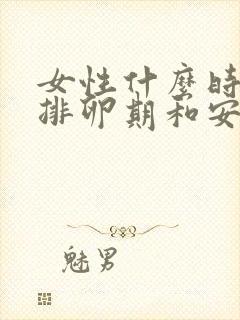 女性什麼時
排卵期和安
魅男